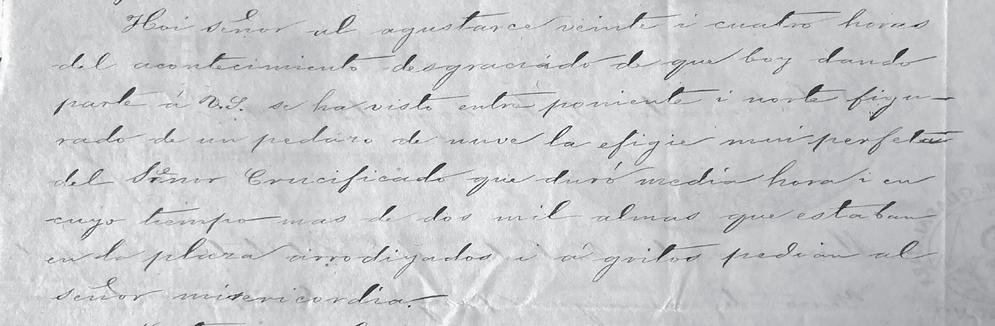 Hoi señor al agustarce veinte i cuatro horas
del acontecimiento desgraciado de que boy dando
parte á V.S. se ha visto entre poniente i norte figu-
rado de un pedazo de nuve la efigie mui perfecta
del Señor Crucificado que duró media hora i en
cuyo tiempo mas de dos mil almas que estaban
en la plaza arrodiyados i á gritos pedian al
señor misericordia.